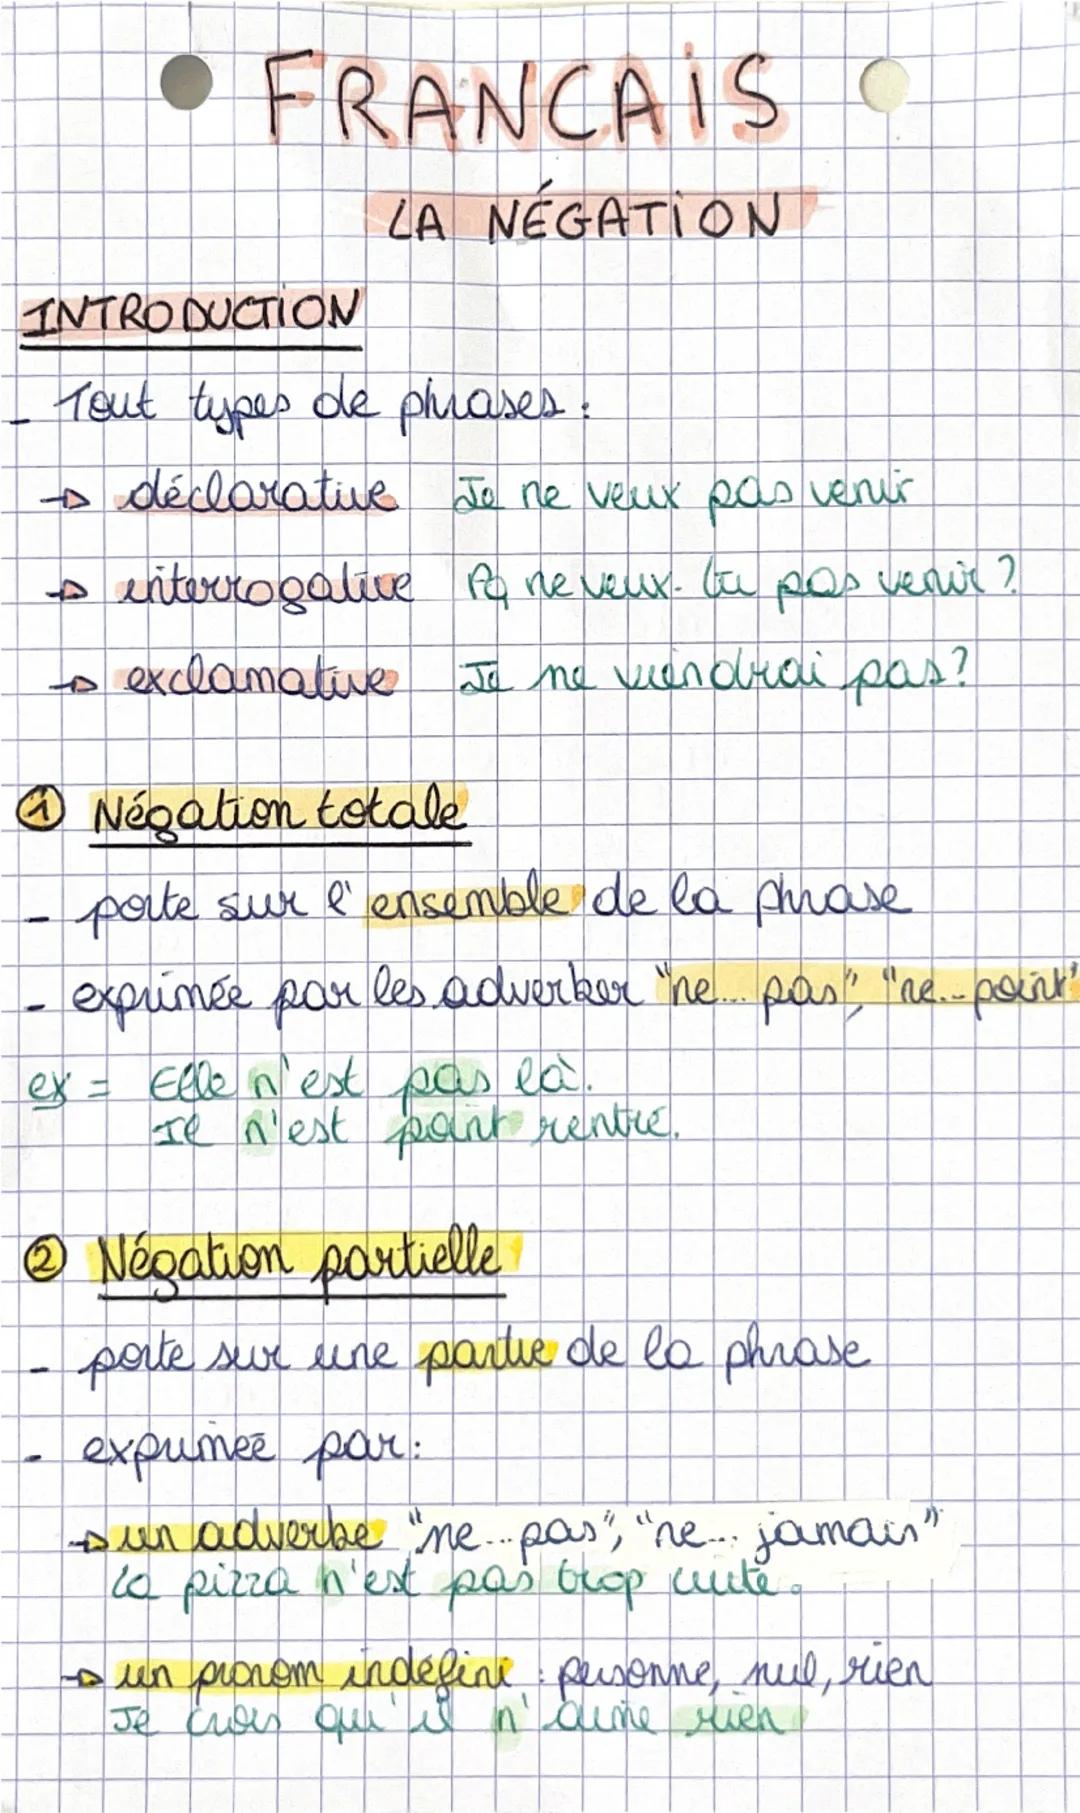 FRANCAIS
LA NÉGATION
INTRODUCTION
- Tout types de phrases :
→ déclarative Je ne veux pas venir
→ interrogative Pq ne veux-tu pas venir ?
→ exclamative Je ne viendrai pas?
① Négation totale
- porte sur l'ensemble de la phrase
- exprimée par les adverbes "ne... pas", "ne... point"
ex = Elle n'est pas là.
Il n'est point rentré.
② Négation partielle
- porte sur une partie de la phrase
- exprimée par :
→ un adverbe "ne... pas", "ne... jamais"
La pizza n'est pas trop cuite.
→ un pronom indéfini : personne, nul, rien
Je crois qu'il n'aime rien